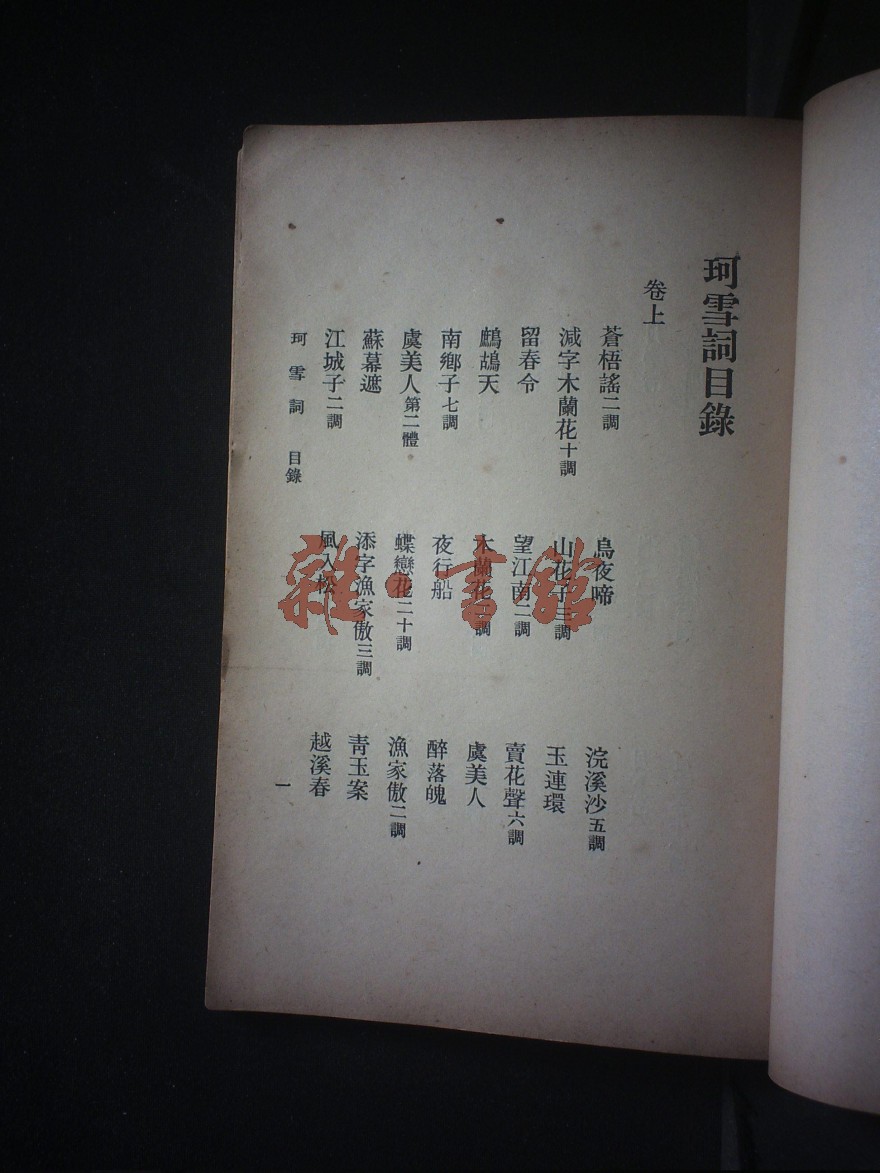 珂雪詞目錄
卷上
蒼梧謠二調
烏夜啼
浣溪沙五調
減字木蘭花十調
山花子三調
玉連環
留春令
望江南二調
賣花聲六調
鷓鴣天
木蘭花調
虞美人
南鄉子七調
夜行船
醉落魄
虞美人第二體
蝶戀花二十調
漁家傲二調
蘇幕遮
添字漁家傲三調
青玉案
江城子二調
風入松
越溪春
珂雪詞 目錄
一
雜·書館